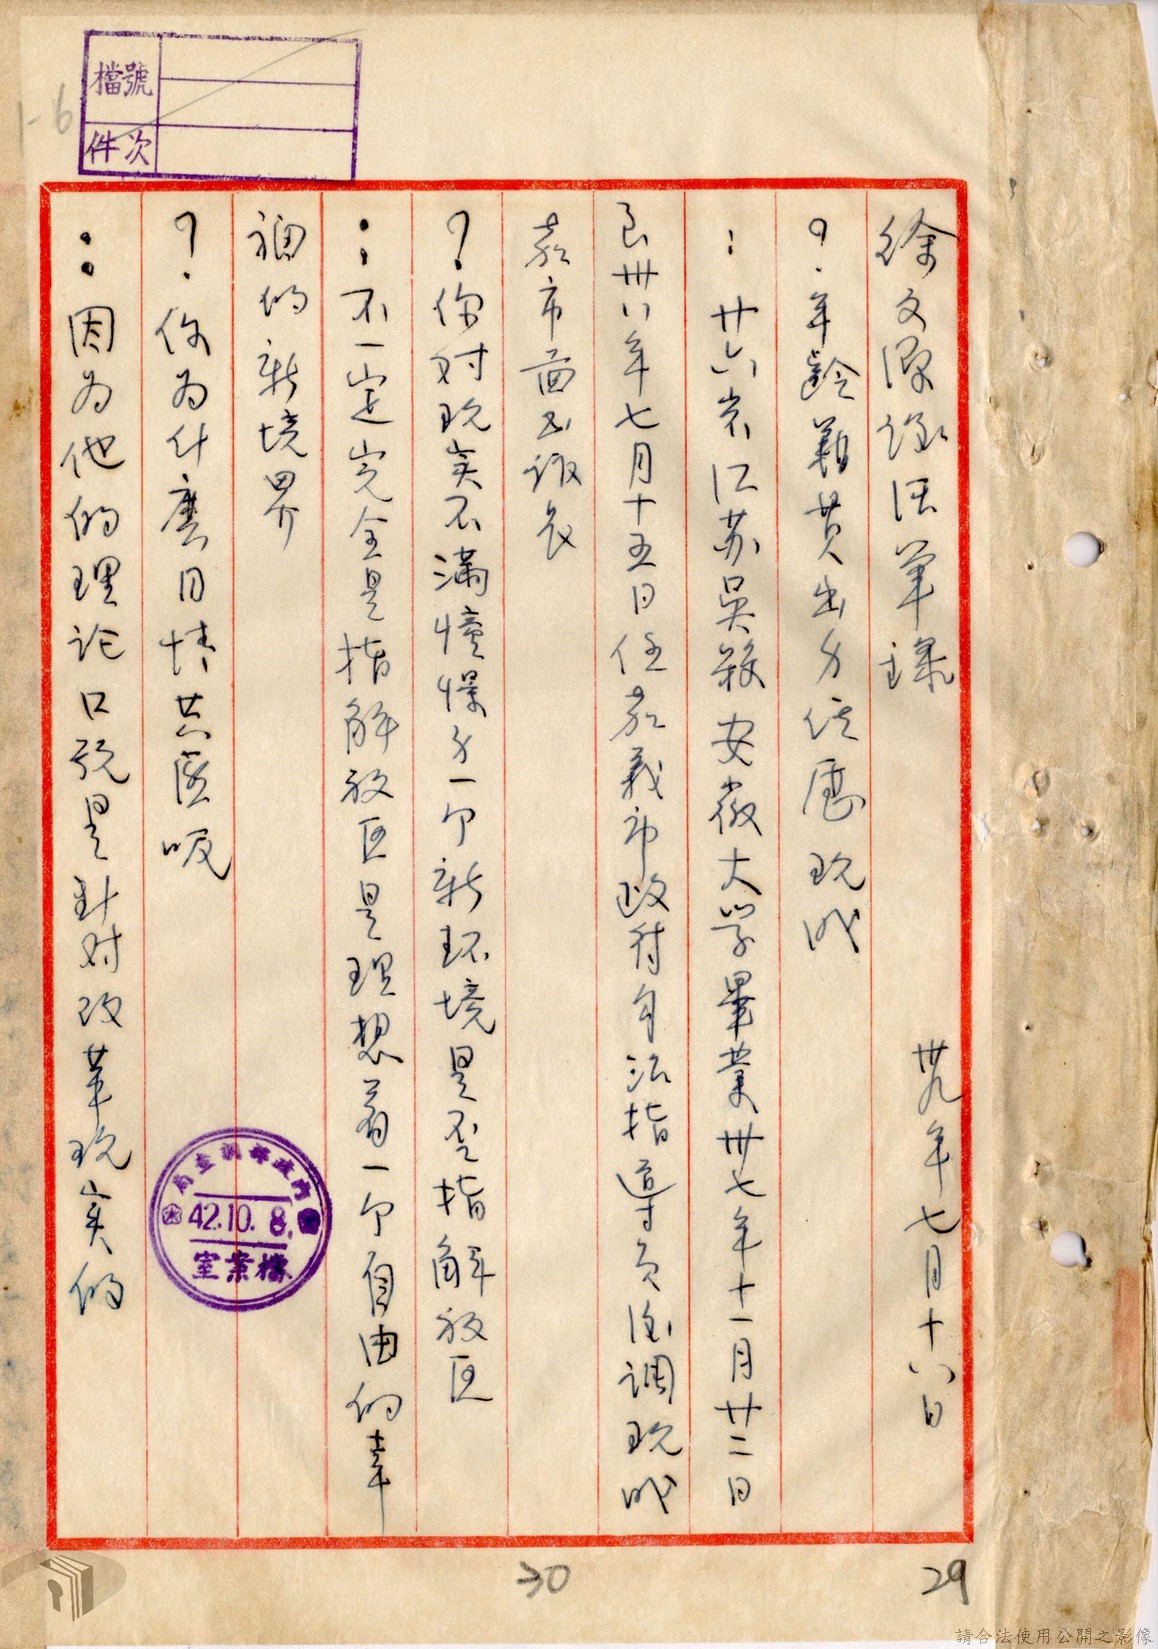 檔號
件次
1-6
徐文淵談話筆錄
卅九年七月十八日
?.年齡籍貫出身經歷現職
:廿六岁江苏吳縣安徽大学畢業卅七年十一月廿二日
卅八年七月十五日任嘉義市政府自治指導員后調現职
嘉市
?.你对现实不滿憧憬另一个新环境是否指解放区
:不一定完全是指解放区是理想着一个自由的幸
福的新境界
?.你为什麽同情共匪呢
:因为他的理论口号是針对改革现实的
內政部調查局
42.10.8.
檔案室
30
29
請合法使用公開之影像